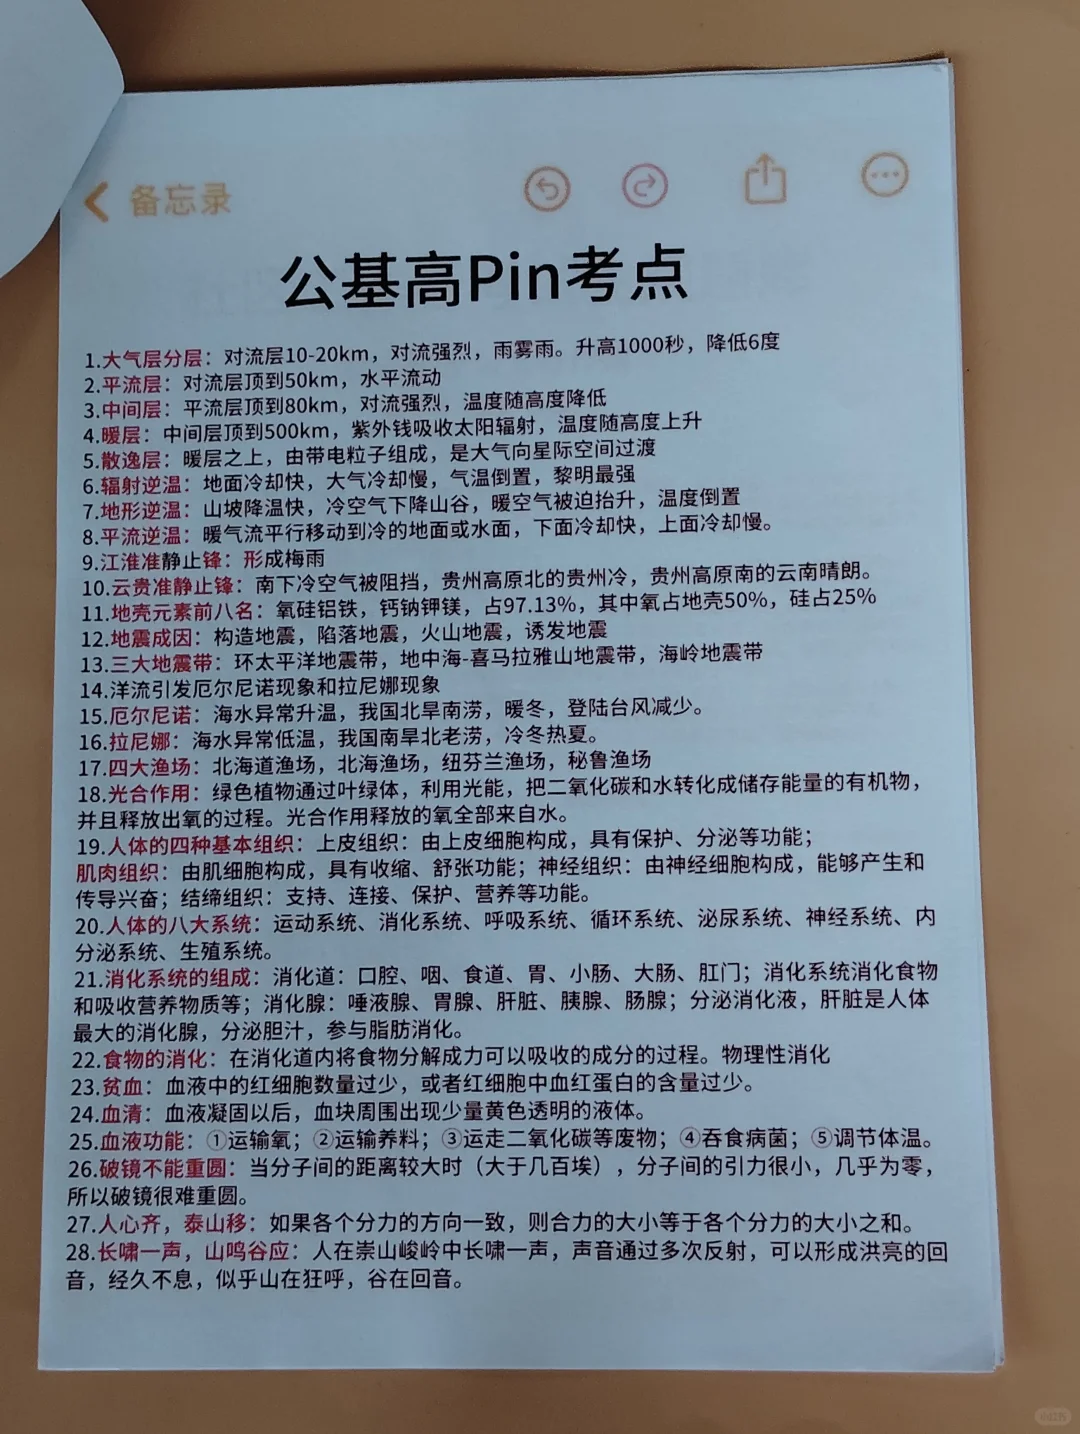 备忘录
公基高Pin考点
1.大气层分层：对流层10-20km，对流强烈，雨雾雨。升高1000秒，降低6度
2.平流层：对流层顶到50km，水平流动
3.中间层：平流层顶到80km，对流强烈，温度随高度降低
4.暖层：中间层顶到500km，紫外钱吸收太阳辐射，温度随高度上升
5.散逸层：暖层之上，由带电粒子组成，是大气向星际空间过渡
6.辐射逆温：地面冷却快，大气冷却慢，气温倒置，黎明最强
7.地形逆温：山坡降温快，冷空气下降山谷，暖空气被迫抬升，温度倒置
8.平流逆温：暖气流平行移动到冷的地面或水面，下面冷却快，上面冷却慢。
9.江淮准静止锋：形成梅雨
10.云贵准静止锋：南下冷空气被阻挡，贵州高原北的贵州冷，贵州高原南的云南晴朗。
11.地壳元素前八名：氧硅铝铁，钙钠钾镁，占97.13%，其中氧占地壳50%，硅占25%
12.地震成因：构造地震，陷落地震，火山地震，诱发地震
13.三大地震带：环太平洋地震带，地中海-喜马拉雅山地震带，海岭地震带
14.洋流引发厄尔尼诺现象和拉尼娜现象
15.厄尔尼诺：海水异常升温，我国北旱南涝，暖冬，登陆台风减少。
16.拉尼娜：海水异常低温，我国南旱北老涝，冷冬热夏。
17.四大渔场：北海道渔场，北海渔场，纽芬兰渔场，秘鲁渔场
18.光合作用：绿色植物通过叶绿体，利用光能，把二氧化碳和水转化成储存能量的有机物，
并且释放出氧的过程。光合作用释放的氧全部来自水。
19.人体的四种基本组织：上皮组织：由上皮细胞构成，具有保护、分泌等功能；
肌肉组织：由肌细胞构成，具有收缩、舒张功能；神经组织：由神经细胞构成，能够产生和
传导兴奋；结缔组织：支持、连接、保护、营养等功能。
20.人体的八大系统：运动系统、消化系统、呼吸系统、循环系统、泌尿系统、神经系统、内
分泌系统、生殖系统。
21.消化系统的组成：消化道：口腔、咽、食道、胃、小肠、大肠、肛门；消化系统消化食物
和吸收营养物质等；消化腺：唾液腺、胃腺、肝脏、胰腺、肠腺；分泌消化液，肝脏是人体
最大的消化腺，分泌胆汁，参与脂肪消化。
22.食物的消化：在消化道内将食物分解成力可以吸收的成分的过程。物理性消化
23.贫血：血液中的红细胞数量过少，或者红细胞中血红蛋白的含量过少。
24.血清：血液凝固以后，血块周围出现少量黄色透明的液体。
25.血液功能：①运输氧；②运输养料；③运走二氧化碳等废物；④吞食病菌；⑤调节体温。
26.破镜不能重圆：当分子间的距离较大时（大于几百埃），分子间的引力很小，几乎为零，
所以破镜很难重圆。
27.人心齐，泰山移：如果各个分力的方向一致，则合力的大小等于各个分力的大小之和。
28.长啸一声，山鸣谷应：人在崇山峻岭中长啸一声，声音通过多次反射，可以形成洪亮的回
音，经久不息，似乎山在狂呼，谷在回音。